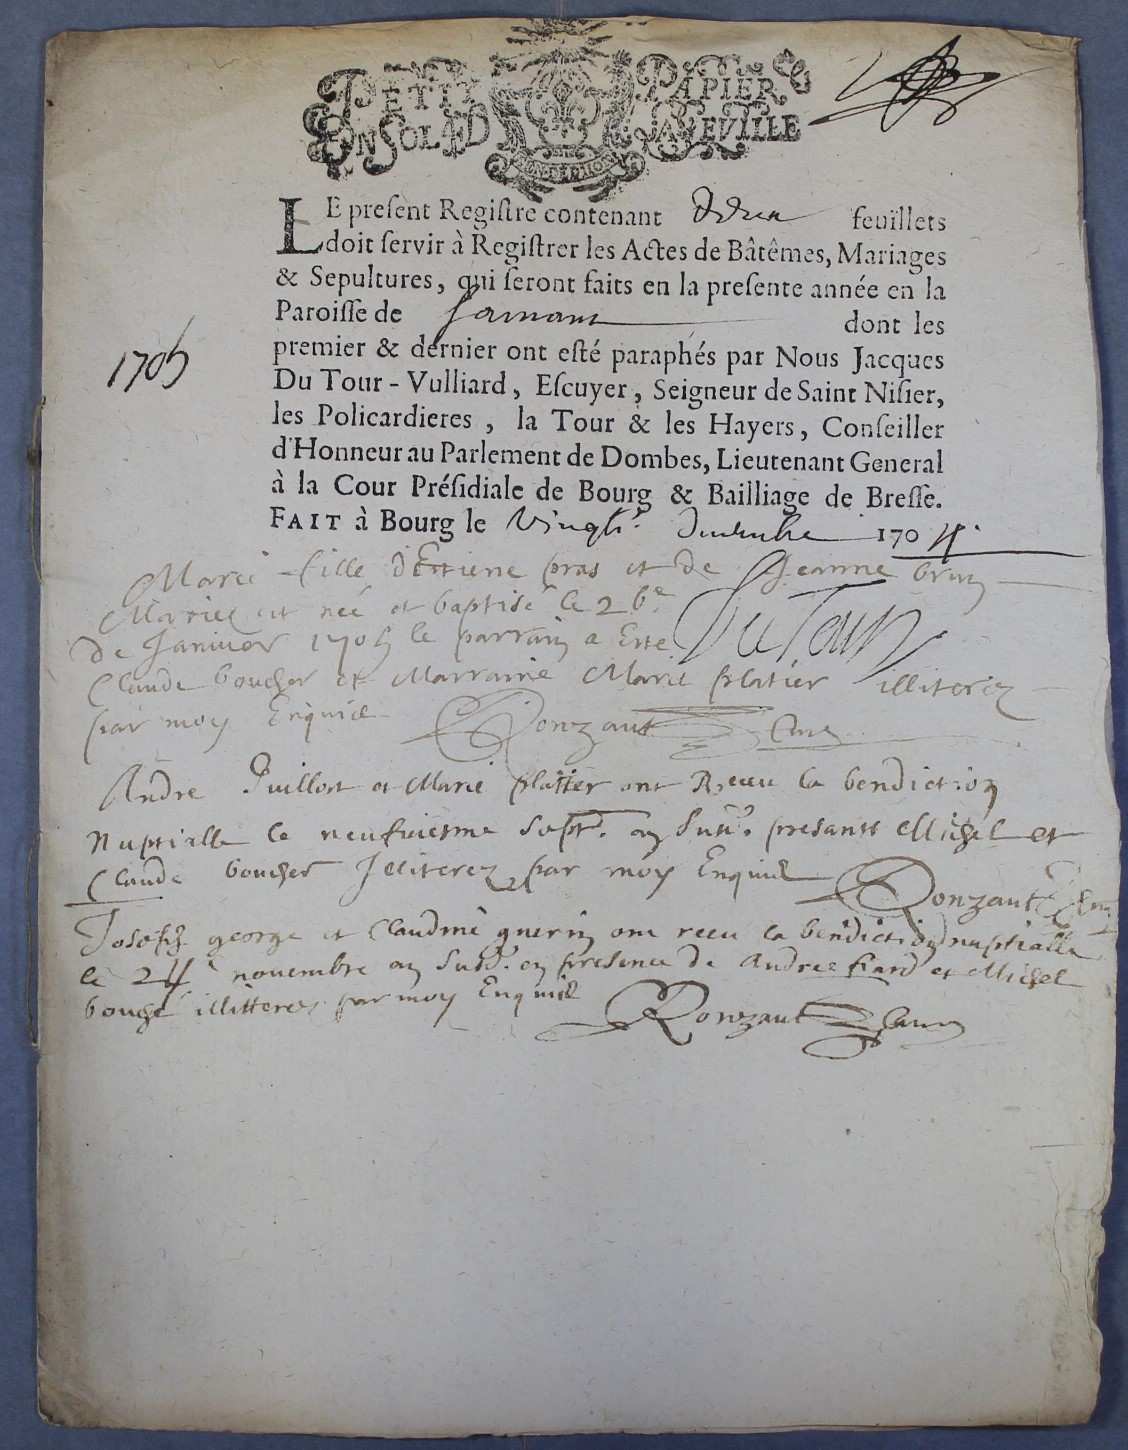 PETIT PAPIER
UN SOL 4 D LA FEVILLE
LE preſent Regiſtre contenant feuillets
doit ſervir à Regiſtrer les Actes de Bâtêmes, Mariages
& Sepultures, qui ſeront faits en la preſente année en la
Paroiſſe de dont les
1705
premier & dernier ont eſté paraphés par Nous Jacques
Du Tour - Vulliard, Eſcuyer, Seigneur de Saint Niſier,
les Policardieres, la Tour & les Hayers, Conſeiller
d'Honneur au Parlement de Dombes, Lieutenant General
à la Cour Préſidiale de Bourg & Bailliage de Breſſe.
FAIT à Bourg le Vingt decembre 1704
Marie fille d'Etiene pras et de Jeanne brun
Mariez et neé et baptisé le 26e
DuTour
de Janvier 1705 le parrain a Esté
Claude boucher et Marraine Marie platier illiterez
par moy Enquis Ronzaut Curé
André Guillot et Marie platier ont Receu la benediction
Nuptialle le neufviesme Sept. an Susd. presants Michel et
Claude boucher Illiterez par moy Enquis Ronzaut Curé
Joseph george et Claudine guerin ont receu la benediction nuptialle
le 24e novembre an Susd. en presence de André fiard et Michel
bouché illitterez par moy Enquis
Ronzaut Curé